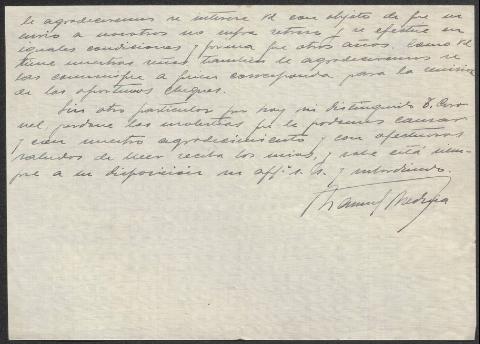 le agradeceremos se interese Vd con objeto de que su
envio a nosotros no sufra retraso y se efectue en
iguales condiciones y forma que otros años. Como Vd
tiene muchas señas tambien le agradeceremos se
las comunique a quien corresponda para la emision
de los oportunos cheques.
Sin otro particular por hoy mi distinguido D. Coro
nel, perdone las molestias que le podamos causar
y con nuestro agradecimiento y con afectuosos
saludos de reciba los mios, y sabe está siem-
pre a su disposicion su affº. s. s. y subordinado.
Manuel Pedreira